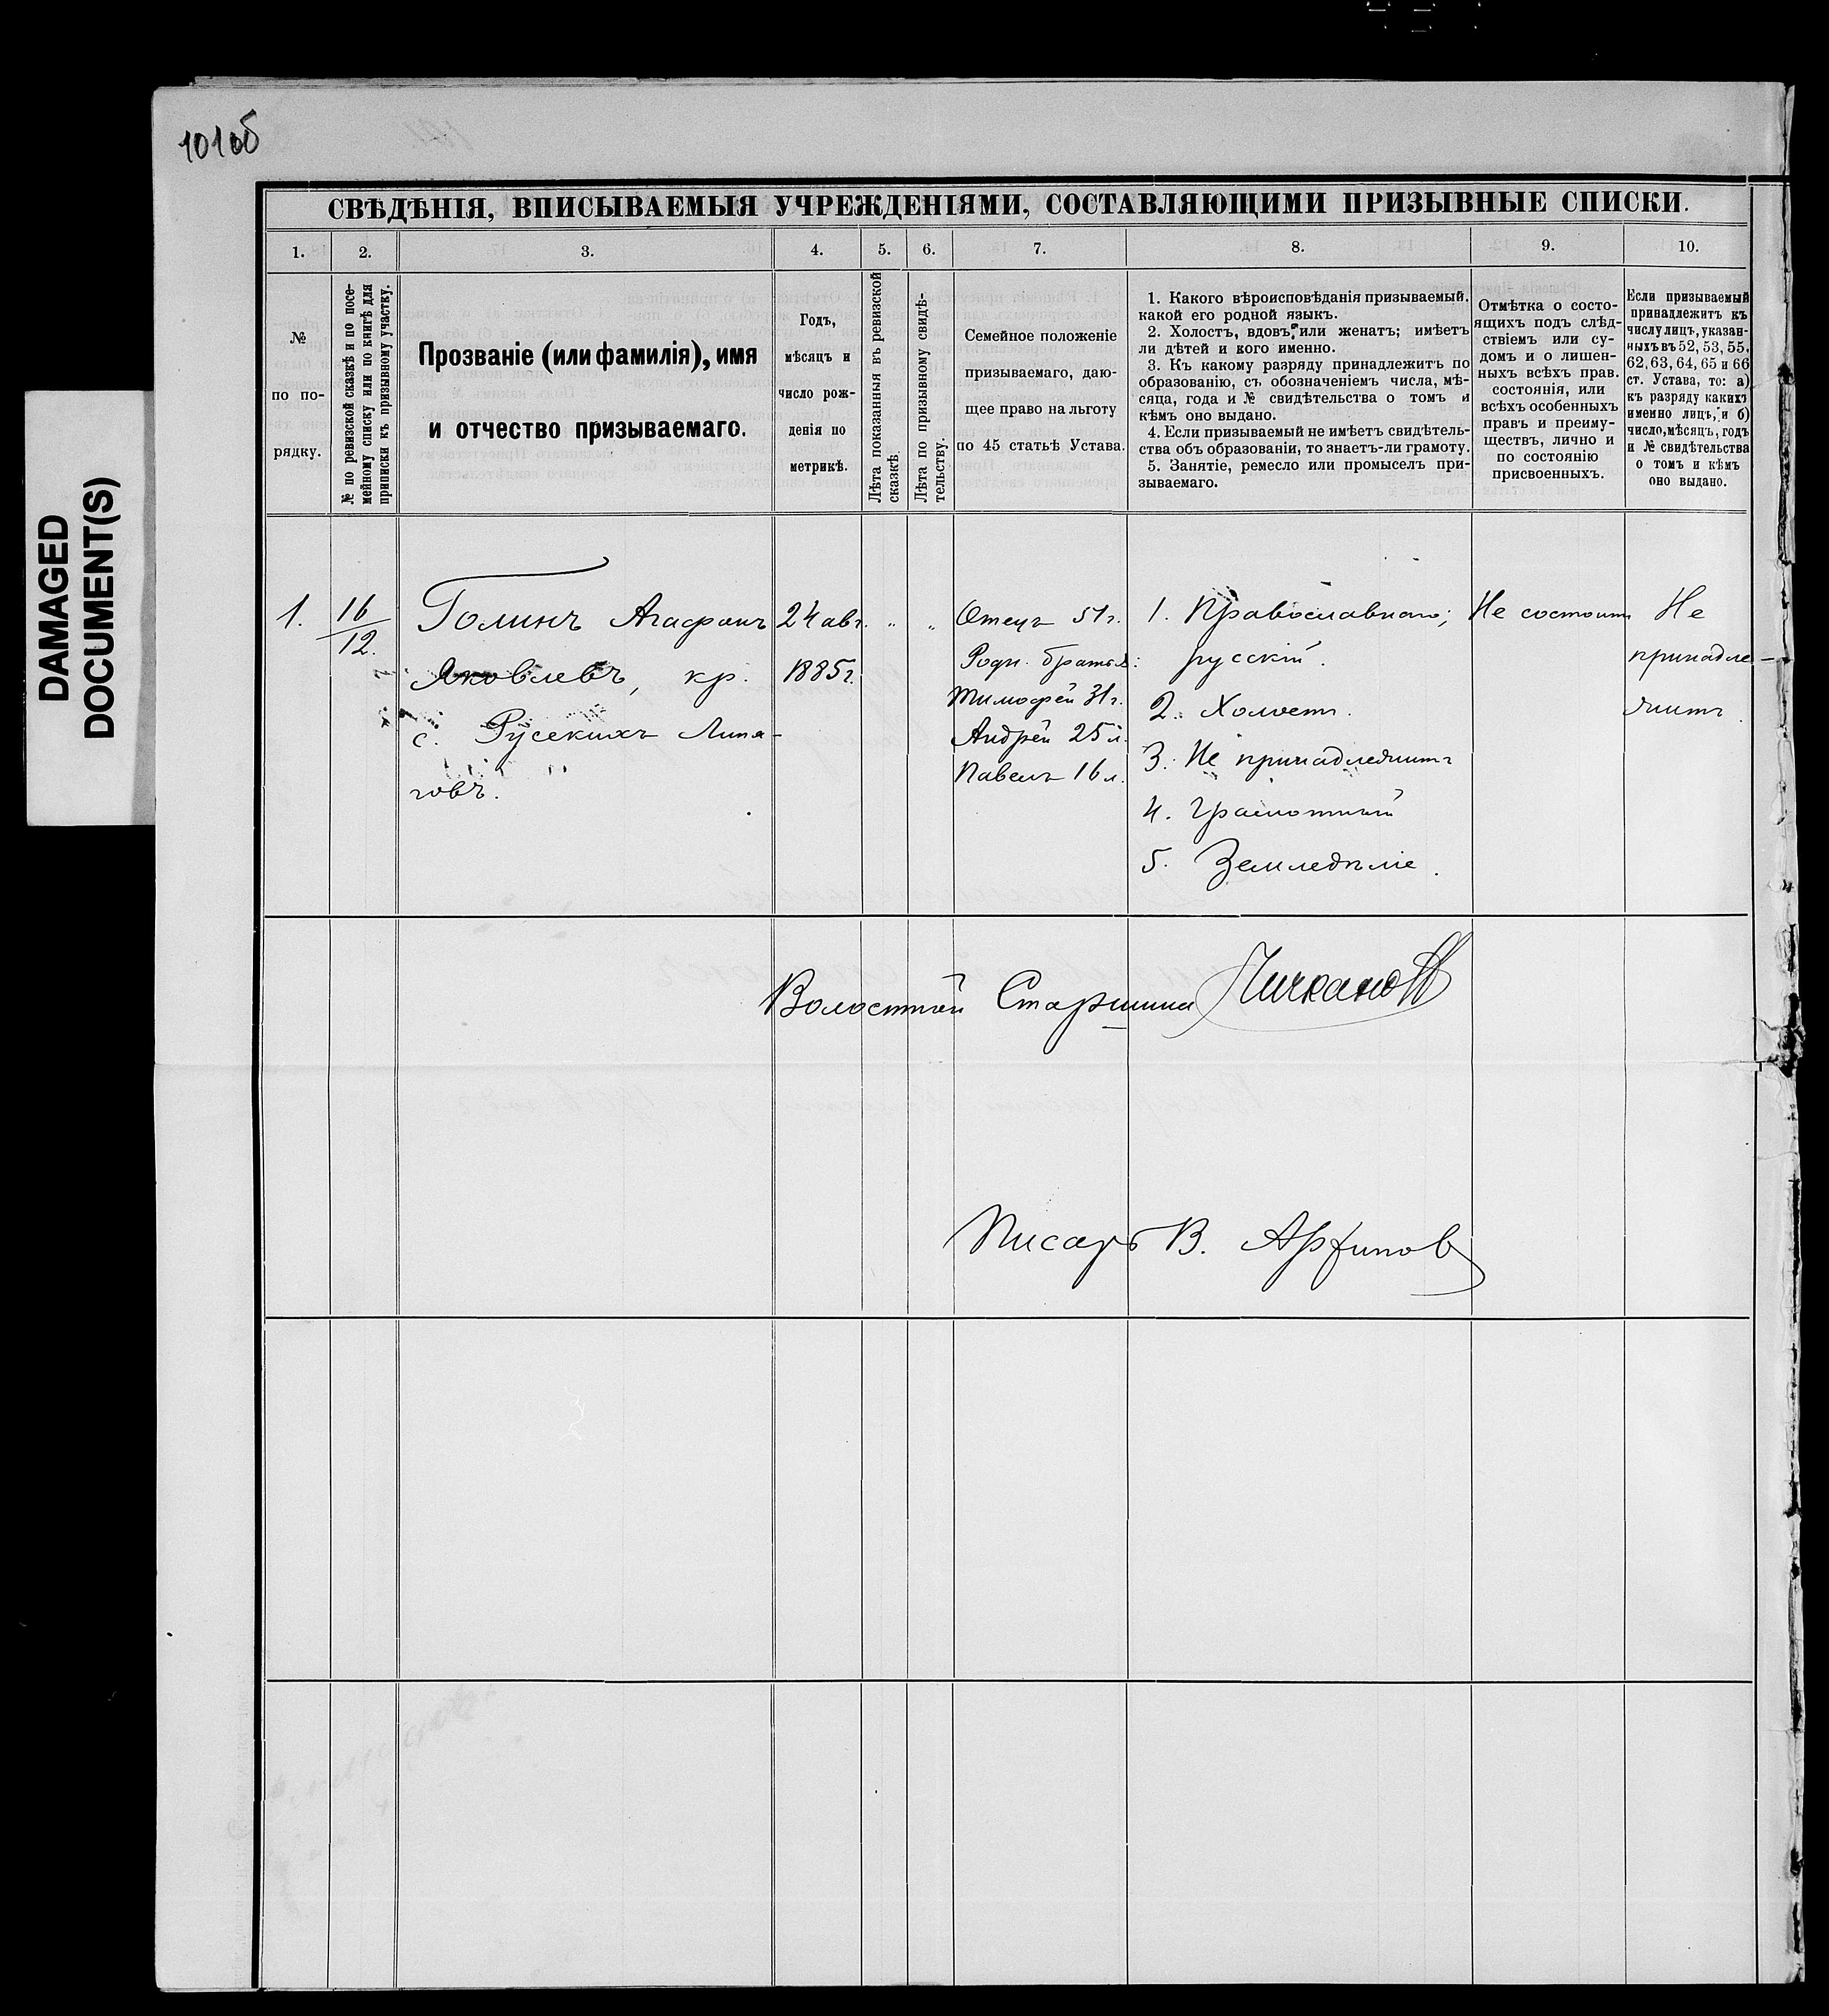 101об
DAMAGED
DOCUMENT(S)
СВѢДѢНІЯ, ВПИСЫВАЕМЫЯ УЧРЕЖДЕНІЯМИ, СОСТАВЛЯЮЩИМИ ПРИЗЫВНЫЕ СПИСКИ.
1. 2. 3. 4. 5. 6. 7. 8. 9. 10.
№
по по-
рядку.
№ по ревизской сказкѣ и по посе-
мейному списку или по книгѣ для
приписки къ призывному участку.
Прозваніе (или фамилія), имя
и отчество призываемаго.
Годъ,
мѣсяцъ и
число рож-
денія по
метрикѣ.
Лѣта показанныя въ ревизской
сказкѣ.
Лѣта по призывному свидѣ-
тельству.
Семейное положеніе
призываемаго, даю-
щее право на льготу
по 45 статьѣ Устава.
1. Какого вѣроисповѣданія призываемый.
какой его родной языкъ.
2. Холостъ, вдовъ, или женатъ; имѣетъ
ли дѣтей и кого именно.
3. Къ какому разряду принадлежитъ по
образованію, съ обозначеніемъ числа, мѣ-
сяца, года и № свидѣтельства о томъ и
кѣмъ оно выдано.
4. Если призываемый не имѣетъ свидѣтель-
ства объ образованіи, то знаетъ-ли грамоту.
5. Занятіе, ремесло или промыселъ при-
зываемаго.
Отмѣтка о состо-
ящихъ подъ слѣд-
ствіемъ или су-
домъ и о лишен-
ныхъ всѣхъ прав.
состоянія, или
всѣхъ особенныхъ
правъ и преиму-
ществъ, лично и
по состоянію
присвоенныхъ.
Если призываемый
принадлежитъ къ
числу лицъ, указан-
ныхъ въ 52, 53, 55,
62, 63, 64, 65 и 66
ст. Устава, то: а)
къ разряду какихъ
именно лицъ, и б)
число, мѣсяцъ, годъ
и № свидѣтельства
о томъ и кѣмъ
оно выдано.
1.
16
12.
Голинъ Агафонъ
Яковлевъ, кр.
с. Русскихъ Липя-
говъ.
24 авг.
1885 г.
"
"
Отецъ 51 г.
Родн. братья:
Тимофей 31 г.
Андрей 25 л.
Павелъ 16 л.
1. Православнаго;
русскій.
2. Холостъ.
3. Не принадлежитъ
4. Грамотный
5. Земледѣліе.
Не состоитъ
Не
принадле-
житъ
Волостной Старшина Чичкановъ
Писарь В. Архипов